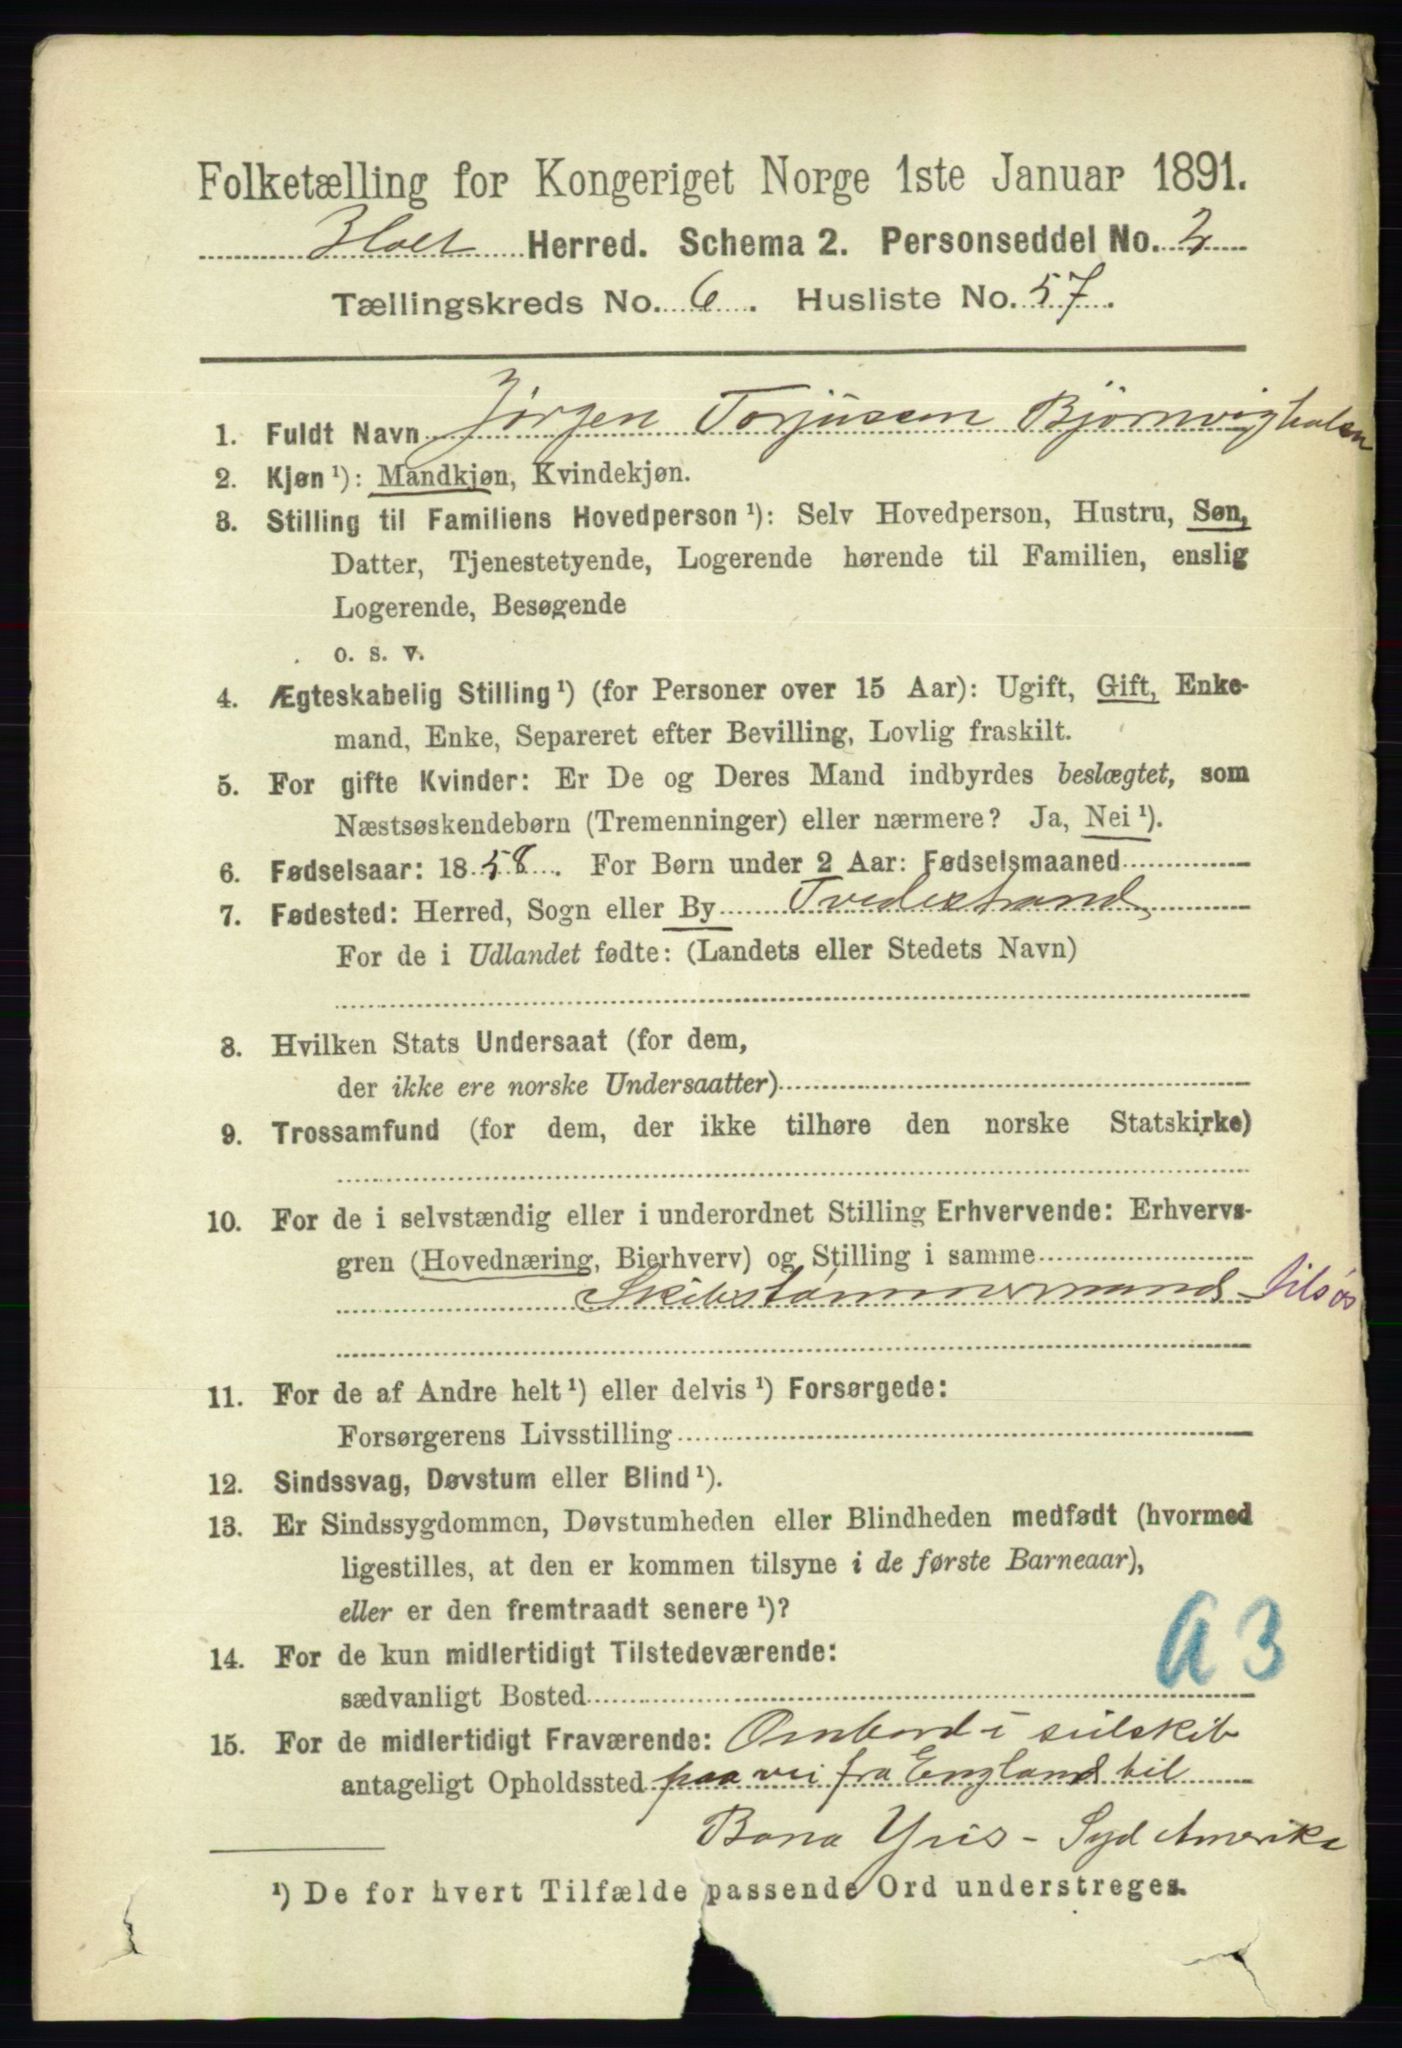 Folketælling for Kongeriget Norge 1ste Januar 1891.
Holt Herred. Schema 2. Personseddel No. 2
Tællingskreds No. 6. Husliste No. 57.
1. Fuldt Navn Jørgen Torjussen Bjørnvigholen
2. Kjøn ¹): Mandkjøn, Kvindekjøn.
3. Stilling til Familiens Hovedperson ¹): Selv Hovedperson, Hustru, Søn,
Datter, Tjenestetyende, Logerende hørende til Familien, enslig
Logerende, Besøgende
o. s. v.
4. Ægteskabelig Stilling ¹) (for Personer over 15 Aar): Ugift, Gift, Enke-
mand, Enke, Separeret efter Bevilling, Lovlig fraskilt.
5. For gifte Kvinder: Er De og Deres Mand indbyrdes beslægtet, som
Næstsøskendebørn (Tremenninger) eller nærmere? Ja, Nei ¹).
6. Fødselsaar: 1858. For Børn under 2 Aar: Fødselsmaaned
7. Fødested: Herred, Sogn eller By Tvedestrand
For de i Udlandet fødte: (Landets eller Stedets Navn)
8. Hvilken Stats Undersaat (for dem,
der ikke ere norske Undersaatter)
9. Trossamfund (for dem, der ikke tilhøre den norske Statskirke)
10. For de i selvstændig eller i underordnet Stilling Erhvervende: Erhvervs-
gren (Hovednæring, Bierhverv) og Stilling i samme
Skibstømmermand tilsøs
11. For de af Andre helt ¹) eller delvis ¹) Forsørgede:
Forsørgerens Livsstilling
12. Sindssvag, Døvstum eller Blind ¹).
13. Er Sindssygdommen, Døvstumheden eller Blindheden medfødt (hvormed
ligestilles, at den er kommen tilsyne i de første Barneaar),
eller er den fremtraadt senere ¹)?
A 3
14. For de kun midlertidigt Tilstedeværende:
sædvanligt Bosted
15. For de midlertidigt Fraværende: Ombord i seilskib
antageligt Opholdssted paa vei fra England til
Bona Yris - Syd Amerika
¹) De for hvert Tilfælde passende Ord understreges.